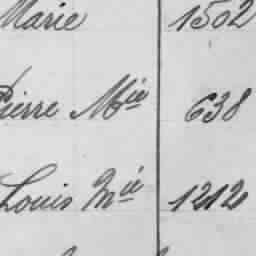 Marie 1502
Pierre Mie 638
Louis Mie 1212